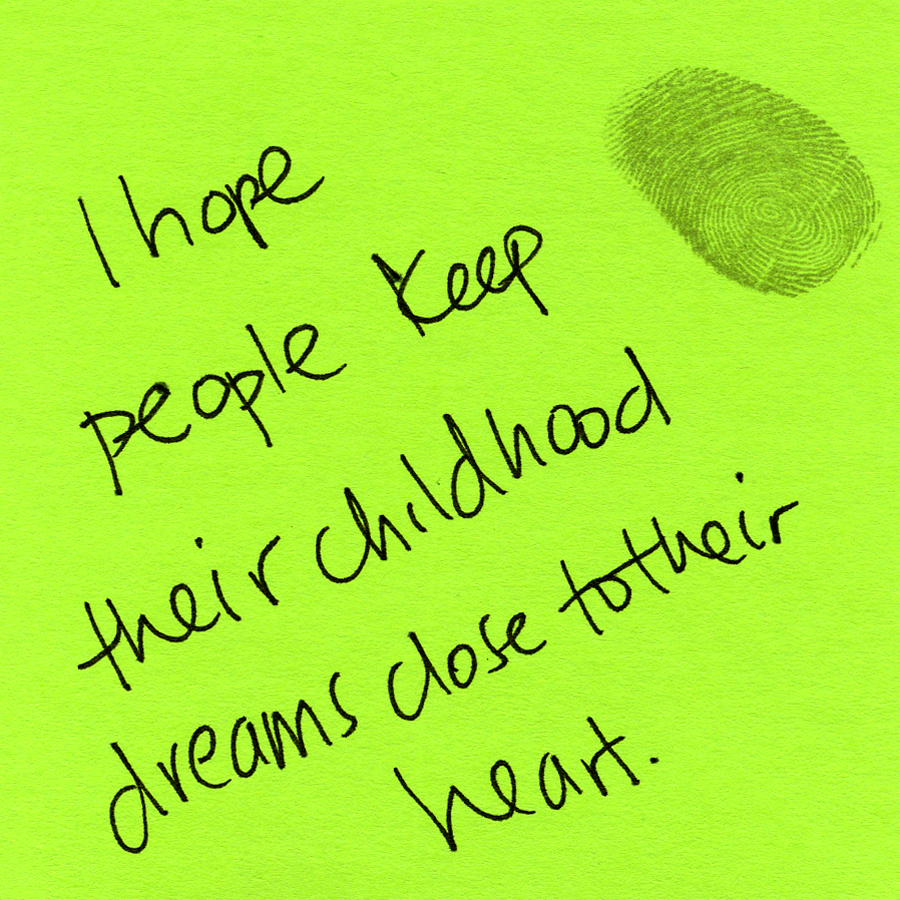 I hope
people keep
their childhood
dreams close to their
heart.